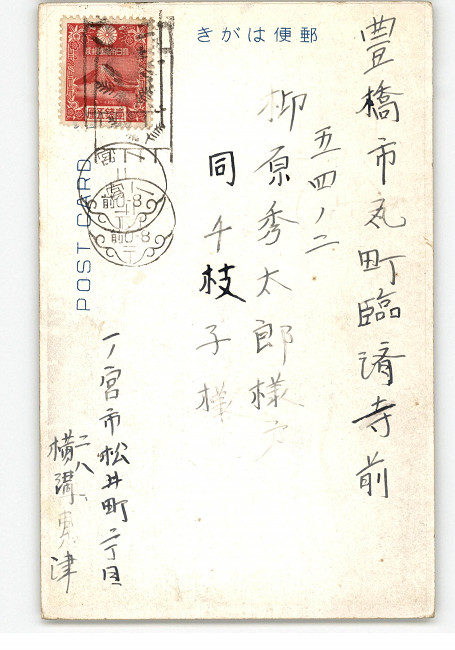 きがは便郵
豊橋市丸町臨済寺前
五四ノ二
柳原秀太郎様方
同千枝子様
一ノ宮市松井町二丁目
二八
横溝
津
POST CARD
前0-8
前0-8